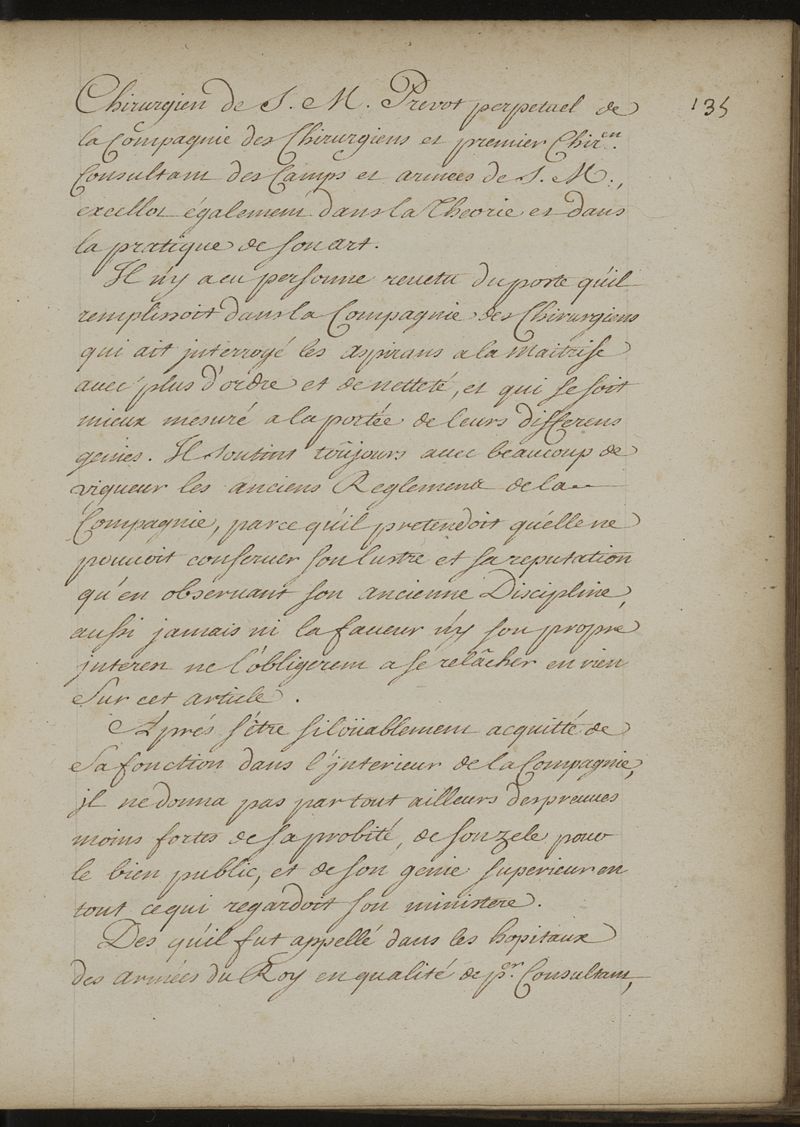 Chirurgien de S. M. Prevot perpetuel de
135
la Compagnie des Chirurgiens et premier Chir.en
Consultant des Camps et armées de S. M.,
excelloit également dans la Theorie et dans
la pratique de son art.
Il n'y a eu personne revetu du poste qu'il
remplissoit dans la Compagnie des Chirurgiens
qui ait jnterrogé les aspirans a la Maitrise
avec plus d'ordre et de netteté, et qui se soit
mieux mesuré a la portée de leurs differens
genies. Il soutint toûjours avec beaucoup de
vigueur les anciens Reglemens de la
Compagnie, parce qu'il pretendoit qu'elle ne
pouvoit conserver son lustre et sa reputation
qu'en observant son ancienne Discipline,
aussi jamais ni la faveur n'y son propre
jnterest ne l'obligerent a se relâcher en rien
sur cet article.
Aprés s'être si loüablement acquitté de
sa fonction dans l'jnterieur de la Compagnie,
jl ne donna pas par tout ailleurs des preuves
moins fortes de sa probité, de son zele pour
le bien public, et de son genie superieur en
tout ce qui regardoit son ministere.
Des qu'il fut appellé dans les hopitaux
des armées du Roy en qualité de p.er Consultant,